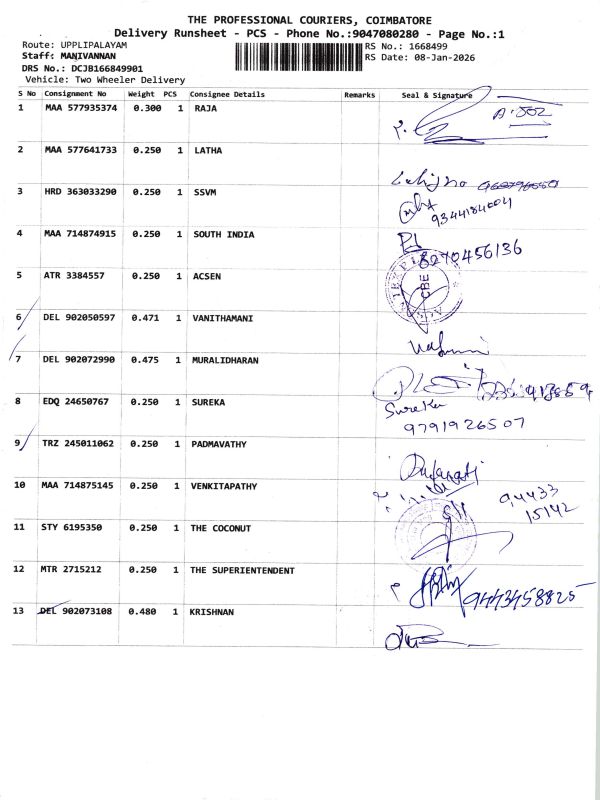 THE PROFESSIONAL COURIERS, COIMBATORE
Delivery Runsheet - PCS - Phone No.:9047080280 - Page No.:1
Route: UPPLIPALAYAM
RS No.: 1668499
Staff: MANIVANNAN
RS Date: 08-Jan-2026
DRS No.: DCJB166849901
Vehicle: Two Wheeler Delivery
S No Consignment No Weight PCS Consignee Details Remarks Seal & Signature
1 MAA 577935374 0.300 1 RAJA
2 MAA 577641733 0.250 1 LATHA
3 HRD 363033290 0.250 1 SSVM
9344184004
4 MAA 714874915 0.250 1 SOUTH INDIA
8270456136
5 ATR 3384557 0.250 1 ACSEN
CBE
6 DEL 902050597 0.471 1 VANITHAMANI
7 DEL 902072990 0.475 1 MURALIDHARAN
8 EDQ 24650767 0.250 1 SUREKA
Sureka
9791926507
9 TRZ 245011062 0.250 1 PADMAVATHY
10 MAA 714875145 0.250 1 VENKITAPATHY
94433
15142
11 STY 6195350 0.250 1 THE COCONUT
12 MTR 2715212 0.250 1 THE SUPERIENTENDENT
9443458825
13 DEL 902073108 0.480 1 KRISHNAN